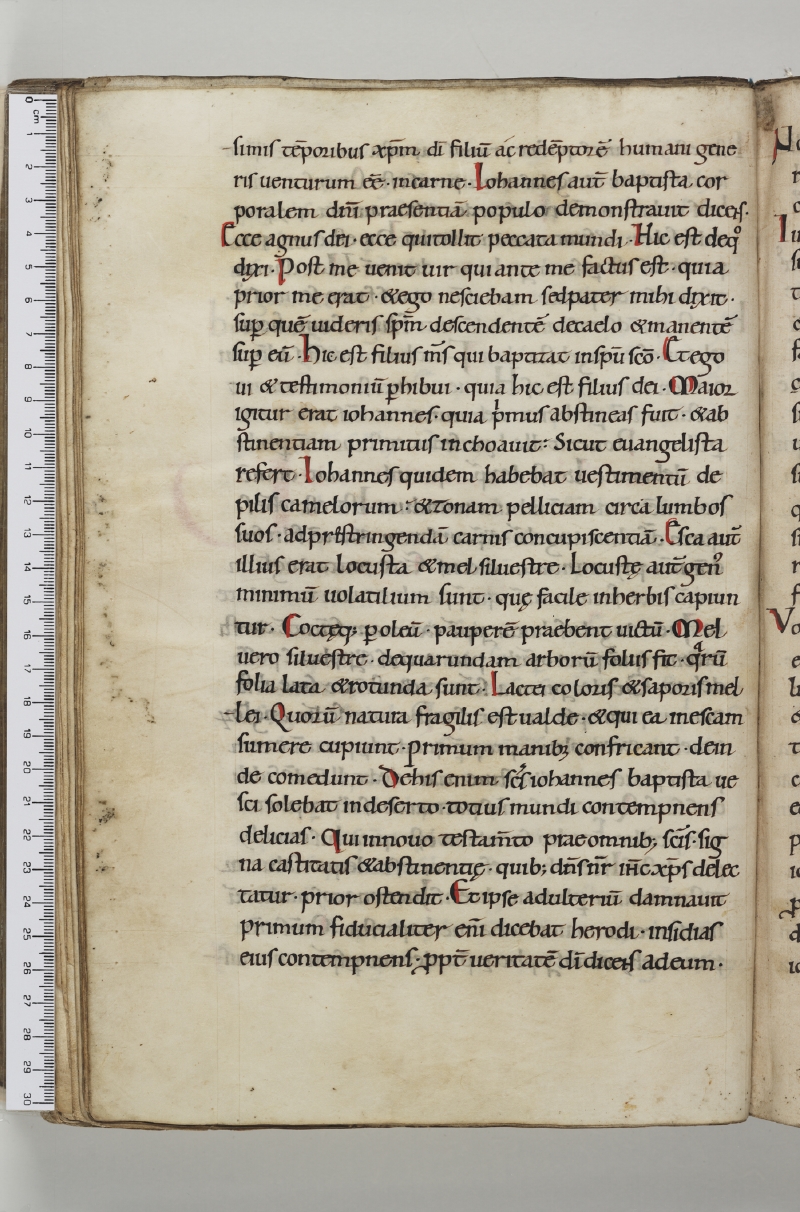 simis tēporibus xp̄m dī filiū ac redēptorē humani gene
ris uenturum ēē · incarne · Iohannes aut̄ baptista cor
poralem dn̄i praesentiā populo demonstrauit dicens ·
Ecce agnus dei · ecce quitollit peccata mundi · Hic est deq̊
dixi · Post me uenit uir qui ante me factus est · quia
prior me erat · &ego nesciebam sedpater mihi dixit ·
sup̄ quē uideris sp̄m descendentē decaelo &manentē
sup̄ eū · hic est filius m̄s qui baptizat insp̄u sc̄o · Et ego
ui &testimoniū ꝑhibui · quia hic est filius dei · Maior
igitur erat iohannes · quia pͥmus abstineas fuit · &ab
stinentiam primitus inchoauit : Sicut euangelista
refert · Iohannes quidem habebat uestimentū de
pilis camelorum : &zonam pelliciam circa lumbos
suos · adpristringendā carnis concupiscentiā · Esca aut̄
illius erat locusta &mel siluestre · Locustę aut̄ gen᷒
minimū uolatilium sunt · quę facile inherbis capiun
tur · Coctęq; ꝑ oleū · pauperē praebent uictū · Mel
uero siluestre · dequarundam arborū foliis fit · qͣrū
folia lata &rotunda sunt · Lactei coloris &saporis mel
lei · Quorū natura fragilis est ualde · &qui ea inescam
sumere cupiunt · primum manib; confricant · dein
de comedunt · De his enim sc̄s iohannes baptista ue
sci solebat in deserto · totius mundi contempnens
delicias · Qui innouo testam̄to prae omnib; sc̄is · sig
na castitatis &abstinentię · quib; dn̄s n̄r ih̄c xp̄s delec
tatur · prior ostendit · Et ipse adulteriū damnauit
primum fiducialiter eni̅ dicebat herodi · insidias
eius contempnens · ꝓpt̄ ueritatē dī dicens ad eum ·